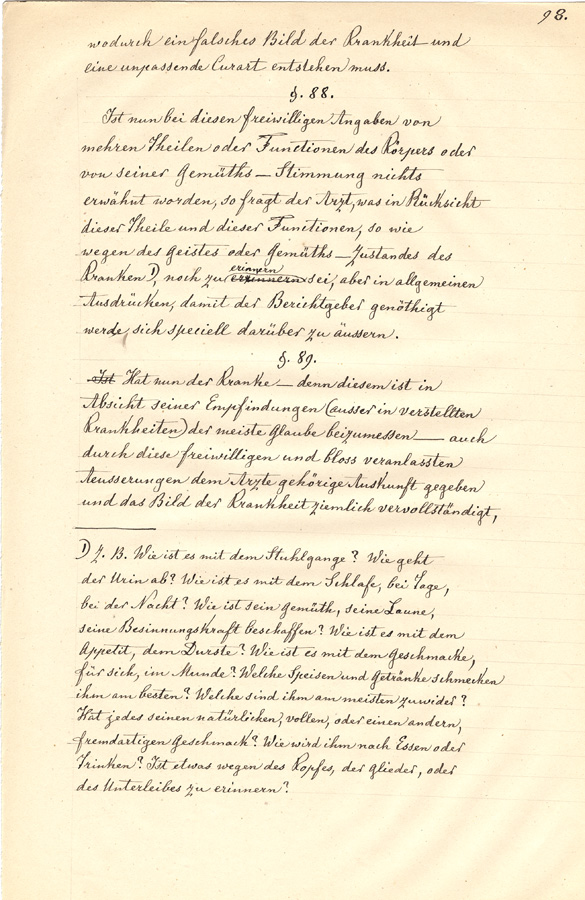 98.
wodurch ein falsches Bild der Krankheit und
eine unpassende Curart entstehen muss.
§. 88.
Ist nun bei diesen freiwilligen Angaben von
mehren Theilen oder Functionen des Körpers oder
von seiner Gemüths-Stimmung nichts
erwähnt worden, so fragt der Arzt, was in Rücksicht
dieser Theile und dieser Functionen, so wie
wegen des Geistes oder Gemüths-Zustandes des
erinnern
Kranken 1), noch zu erzinnern sei, aber in allgemeinen
Ausdrücken, damit der Berichtgeber genöthigt
werde, sich speciell darüber zu äussern.
§. 89.
Ist Hat nun der Kranke — denn diesem ist in
Absicht seiner Empfindungen (ausser in verstellten
Krankheiten) der meiste Glaube beizumessen — auch
durch diese freiwilligen und bloss veranlassten
Aeusserungen dem Arzte gehörige Auskunft gegeben
und das Bild der Krankheit ziemlich vervollständigt,
1) Z. B. Wie ist es mit dem Stuhlgange? Wie geht
der Urin ab? Wie ist es mit dem Schlafe, bei Tage,
bei der Nacht? Wie ist sein Gemüth, seine Laune,
seine Besinnungskraft beschaffen? Wie ist es mit dem
Appetit, dem Durste? Wie ist es mit dem Geschmacke,
für sich, im Munde? Welche Speisen und Getränke schmecken
ihm am besten? Welche sind ihm am meisten zuwider?
Hat jedes seinen natürlichen, vollen, oder einen andern,
fremdartigen Geschmack? Wie wird ihm nach Essen oder
Trinken? Ist etwas wegen des Kopfes, der Glieder, oder
des Unterleibes zu erinnern?